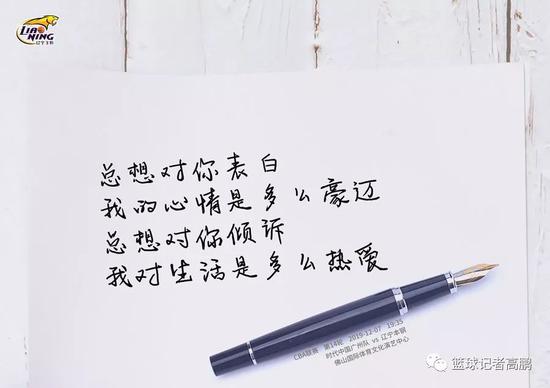 LIAO
NING
辽宁本钢
总想对你表白
我的心情是多么豪迈
总想对你倾诉
我对生活是多么热爱
CBA联赛 第14轮 2019-12-07 19:35
时代中国广州队 vs 辽宁本钢
佛山国际体育文化演艺中心
篮球记者高鹏